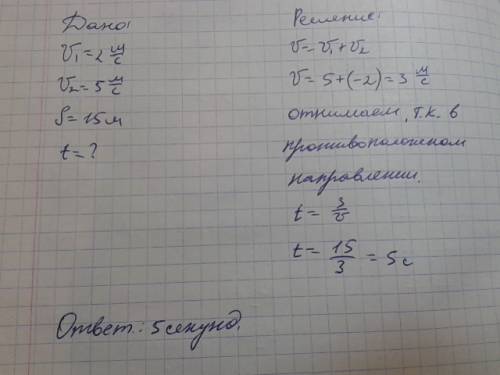 Дано:
V₁=2 м/с
V₂=5 м/с
S=15м
t=?
Решение:
V=V₁+V₂
V=5+(-2)=3 м/с
отнимаем, т.к. в
противоположном
направлении.
t=S/V
t=15/3=5с
Ответ: 5 секунд.